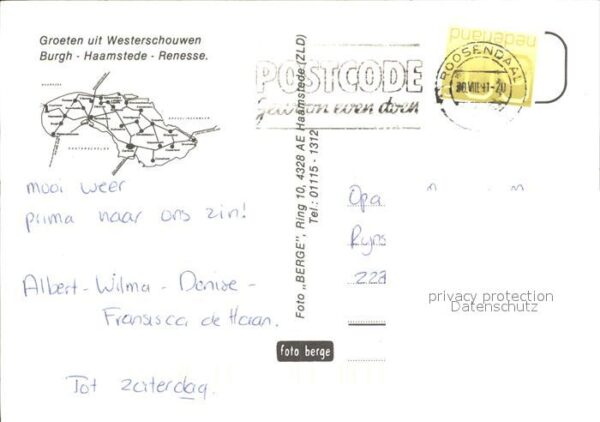 Groeten uit Westerschouwen
Burgh - Haamstede - Renesse.
mooi weer
prima naar ons zin!
Albert - Wilma - Denise -
Fransisca de Haan.
Tot zaterdag.
Foto „BERGE”, Ring 10, 4328 AE Haamstede (ZLD)
Tel.: 01115 - 1312
foto berge
POSTCODE
gewoon even doen
ROOSENDAAL
nederland
Opa
Rijns
223
privacy protection
Datenschutz